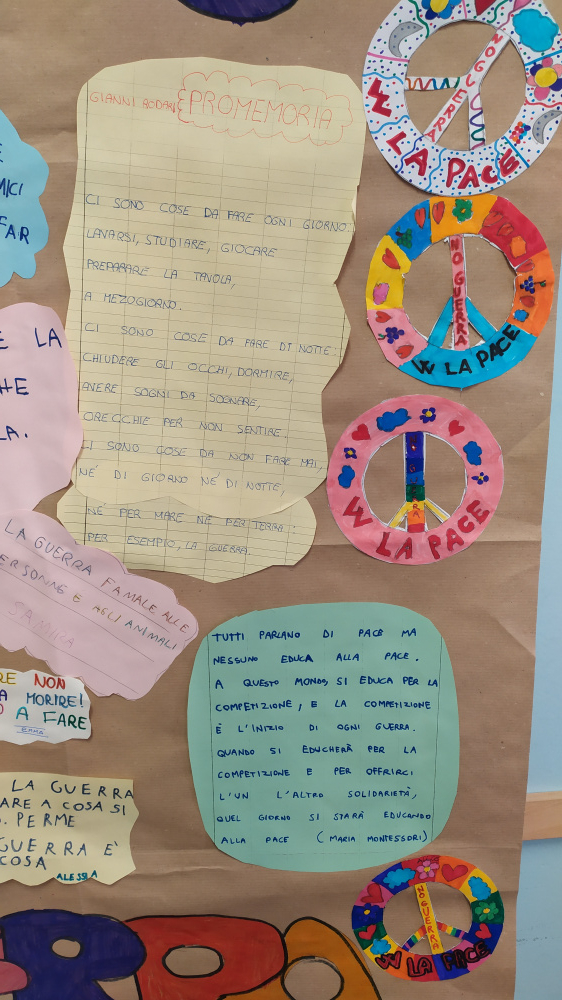 GIANNI RODARI
PROMEMORIA
CI SONO COSE DA FARE OGNI GIORNO:
LAVARSI, STUDIARE, GIOCARE
PREPARARE LA TAVOLA,
A MEZOGIORNO.
CI SONO COSE DA FARE DI NOTTE:
CHIUDERE GLI OCCHI, DORMIRE,
AVERE SOGNI DA SOGNARE,
ORECCHIE PER NON SENTIRE.
CI SONO COSE DA NON FARE MAI,
NÉ DI GIORNO NÉ DI NOTTE,
NÉ PER MARE NÉ PER TERRA:
PER ESEMPIO, LA GUERRA.
NO GUERRA
W LA PACE
NO GUERRA
W LA PACE
NO GUERRA
W LA PACE
E
MICI
FAR
E LA
HE
LA.
LA GUERRA FA MALE ALLE
PERSONNE E AGLI ANIMALI
SAMIRA
RE NON
A MORIRE!
O A FARE
EMMA
LA GUERRA
ARE A COSA SI
. PER ME
GUERRA E'
COSA
ALESSIA
TUTTI PARLANO DI PACE MA
NESSUNO EDUCA ALLA PACE.
A QUESTO MONDO, SI EDUCA PER LA
COMPETIZIONE, E LA COMPETIZIONE
È L'INIZIO DI OGNI GUERRA.
QUANDO SI EDUCHERÀ PER LA
COMPETIZIONE E PER OFFRIRCI
L'UN L'ALTRO SOLIDARIETÀ,
QUEL GIORNO SI STARÀ EDUCANDO
ALLA PACE (MARIA MONTESSORI)
NO GUERRA
W LA PACE